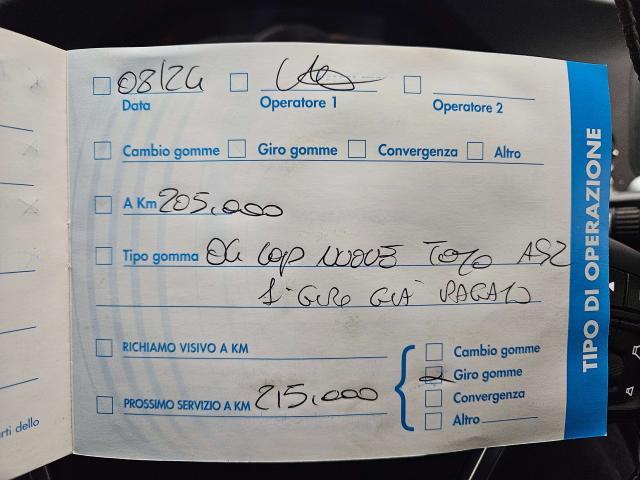 08/24
Data
Operatore 1
Operatore 2
Cambio gomme Giro gomme Convergenza Altro
A Km 205.000
Tipo gomma 04 COP NUOVE TOYO AS2
1° GIRO GIÀ PAGATO
RICHIAMO VISIVO A KM
PROSSIMO SERVIZIO A KM 215.000
Cambio gomme
Giro gomme
Convergenza
Altro
TIPO DI OPERAZIONE
rti dello